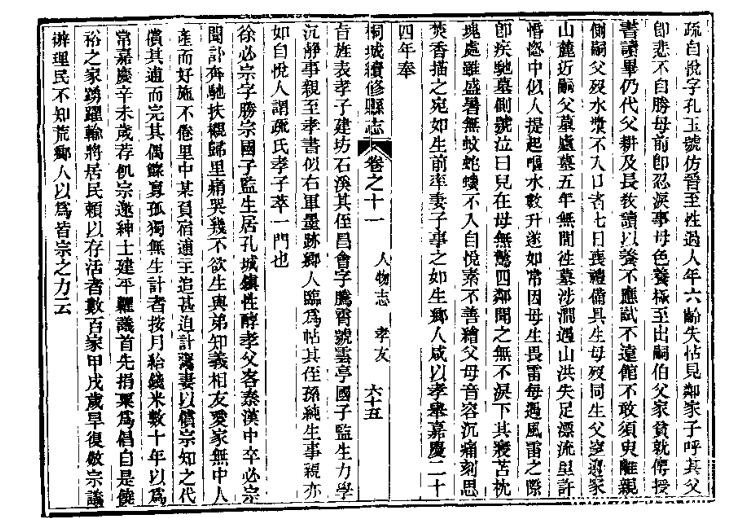 疏自悅字孔玉號仿晉至性過人年六齡失怙見鄰家子呼其父
卽悲不自勝母前卽忍淚事母色養極至出嗣伯父家貧就傅授
書讀畢仍代父耕及長敎讀以養不應試不遠館不敢須臾離親
側嗣父歿水漿不入口者七日喪禮備具生母歿同生父窆遵家
山麓近嗣父墓廬墓五年無間徃墓涉澗遇山洪失足漂流里許
惛惛中似人提起嘔水數升遂如常因母生畏雷母遇風雷之際
卽疾馳墓側號泣曰兒在母無驚四鄰聞之無不淚下其寢苫枕
塊處雖盛暑無蚊蛇蟻不入自悅素不善繪父母音容沉痛刻思
焚香描之宛如生前率妻子事之如生鄉人咸以孝舉嘉慶二十
四年奉
桐城續修縣志
卷之十一
人物志 孝友
六十五
旨旌表孝子建坊石溪其侄昌會字騰霄號雲亭國子監生力學
沉靜事親至孝書似右軍墨跡鄉人臨爲帖其侄孫純生事親亦
如自悅人謂疏氏孝子萃一門也
徐必宗字勝宗國子監生居孔城鎭性醇孝父客秦漢中卒必宗
聞訃奔馳扶櫬歸里痛哭幾不欲生與弟知義相友愛家無中人
產而好施不倦里中某負宿逋主追甚迫計鬻妻以償宗知之代
償其逋而完其偶鰥寡孤獨無生計者按月給錢米數十年以爲
常嘉慶辛未歲荐飢宗邀紳士建平糶議首先捐粟爲倡自是饒
裕之家踴躍輸將居民賴以存活者數百家甲戌歲旱復倣宗議
辦理民不知荒鄉人以爲皆宗之力云